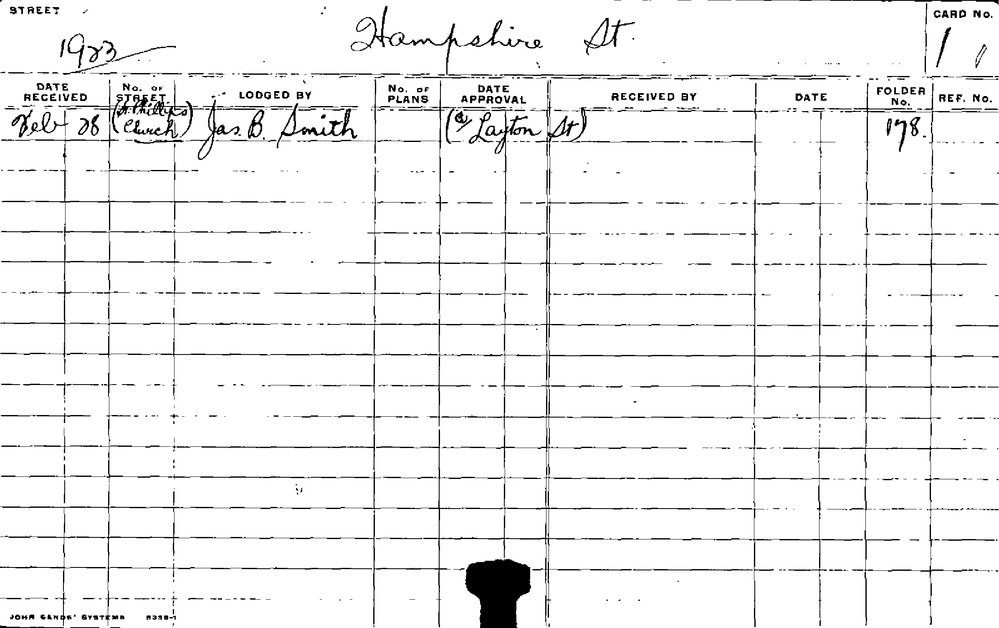 STREET
Hampshire St.
CARD No.
1923
1 1
DATE RECEIVED
No. OF STREET
LODGED BY
No. OF PLANS
DATE APPROVAL
RECEIVED BY
DATE
FOLDER No.
REF. No.
(St. Phillips)
Feb 28 Church) Jas. B. Smith (@ Layton St) 178.
JOHN SANDS' SYSTEMS 8358-1